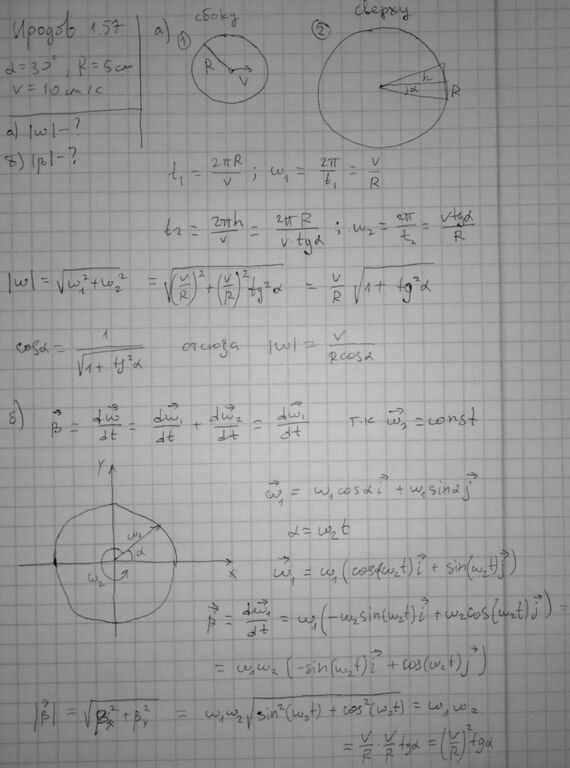 Иродов 1.57
α = 30°, R = 5 cm
v = 10 cm/c
а) |ω| - ?
б) |β| - ?
а) сбоку сверху
① ②
R v
h α R
t₁ = 2πR/v ; ω₁ = 2π/t₁ = v/R
t₂ = 2πh/v = 2πR/(v·tgα) ; ω₂ = 2π/t₂ = v tgα/R
|ω| = √(ω₁² + ω₂²) = √((v/R)² + (v/R)² tg²α) = v/R √(1 + tg²α)
cosα = 1/√(1 + tg²α) отсюда |ω| = v/(R cosα)
б) β⃗ = dω⃗/dt = dω⃗₁/dt + dω⃗₂/dt = dω⃗₁/dt т.к ω⃗₂ = const
Y
ω₁ α
ω₂ X
ω⃗₁ = ω₁cosα i⃗ + ω₁sinα j⃗
α = ω₂t
ω⃗₁ = ω₁(cos(ω₂t) i⃗ + sin(ω₂t) j⃗)
β⃗ = dω⃗₁/dt = ω₁(-ω₂sin(ω₂t) i⃗ + ω₂cos(ω₂t) j⃗) =
= ω₁ω₂(-sin(ω₂t) i⃗ + cos(ω₂t) j⃗)
|β⃗| = √(βₓ² + βᵧ²) = ω₁ω₂√(sin²(ω₂t) + cos²(ω₂t)) = ω₁ω₂
= v/R · v/R tgα = (v/R)² tgα